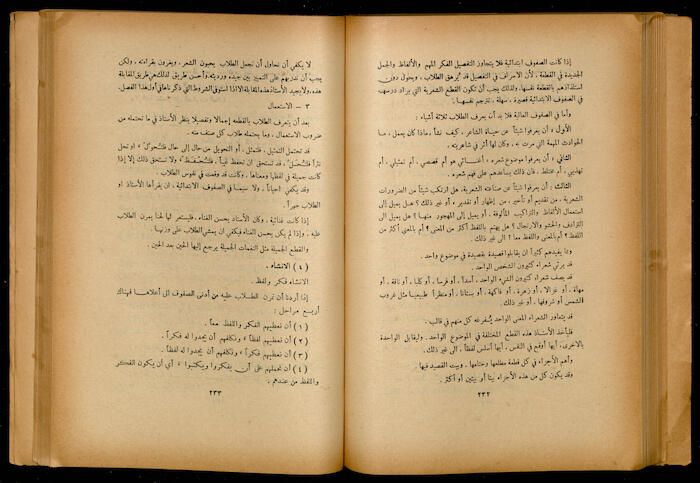 إذا كانت الصفوف ابتدائية فلا يتجاوز التفصيل الفكر المهم والألفاظ والجمل
الجديدة في القطعة ، لأن الاسراف في التفصيل قد يُرهق الطلاب ، ويحول دون
استفادتهم بالقطعة نفسها . ولذلك يجب أن تكون القطع الشعرية التي يراد درسها
في الصفوف الابتدائية قصيرة ، سهلة ،
وأما في الصفوف العالية فلا بد أن يعرف الطلاب ثلاثة أشياء :
الأول : أن يعرفوا شيئاً عن حياة الشاعر ، كيف نشأ ، ماذا كان يعمل ، ما
الحوادث المهمة التي مرت به ، وكان لها أثر في شاعريته .
الثاني : أن يعرفوا موضوع شعره ، أغنائي هو أم قصصي ، أم تمثيلي ، أم
تهذيبي ، أم مختلط ، فان ذلك يساعدهم على فهم شعره .
الثالث : أن يعرفوا شيئاً عن صناعته الشعرية ، هل ارتكب شيئاً من الضرورات
الشعرية ، من تقديم أو تأخير ، من إظهار أو تقدير ، أو غير ذلك ؟ هل يميل إلى
استعمال الألفاظ والتراكيب المألوفة ، أو يميل إلى المهجور منها ؟ هل يميل الى
الترادف والحشو والارتجال ؟ هل يهتم باللفظ أكثر من المعنى ؟ أم بالمعنى أكثر من
اللفظ ؟ أم بالمعنى واللفظ معاً ؟ الى غير ذلك .
ومما يفيدهم كثيراً ان يقابلوا قصيدة بقصيدة في موضوع واحد .
قد يرثي شعراء كثيرون الشخص الواحد .
قد يصف شعراء كثيرون الشيء الواحد ، أسداً ، أو فرسا ، أو كلبا ، أو ناقة ، أو
مهاة ، أو غزالا ، أو زهرة ، أو فاكهة ، أو بستانا ، أو منظراً طبيعيا مثل غروب
الشمس أو شروقها ، أو غير ذلك .
قد يتداور الشعراء المعنى الواحد يُفرغه كل منهم في قالب .
فليأخذ الأستاذ هذه القطع المختلفة في الموضوع الواحد . وليقابل الواحدة
بالاخرى ، أيها أوقع في النفس ، أيها أسلس لفظاً ، الى غير ذلك .
وأهم الأجزاء في كل قطعة مطلعها وختامها ، وبيت القصيد فيها .
وقد يكون كل من هذه الأجزاء بيتا أو بيتين أو أكثر .
٢٣٢
لا يكفي أن نحاول أن نجعل الطلاب يحبون الشعر ، ويغرون بقراءته ، ولكن
يجب أن ندربهم على التمييز بين جيده ورديئه . وأحسن طريق لذلك هي طريق المقابلة
هذه . ولا يجيد الأستاذ هذه المقابلة الا اذا استوفى الشروط التي ذكرناها في أول هذا الفصل .
٣ – الاستعمال
بعد أن يتعرف الطلاب بالقطعة إجمالا وتفصيلا ينظر الأستاذ في ما تحتمله من
ضروب الاستعمال ، وما يحتمله طلاب كل صنف منه .
قد تحتمل التمثيل ، فلتمثل ، أو التحويل من حال إلى حال فلتُحوّل ، او تحل
نثراً فلتُحل ، قد تستحق ان تحفظ غيباً ، فلتُحفظ ، ولا تستحق ذلك إلا إذا
كانت جميلة في لفظها ومعناها ، وكانت قد وقعت في نفوس الطلاب .
وقد يكفي أحياناً ، ولا سيما في الصفوف الابتدائية ، ان يقرأها الأستاذ او
الطلاب جهراً .
إذا كانت غنائية ، وكان الأستاذ يحسن الغناء ، فليستعر لها لحنا يمرن الطلاب
عليه . وإذا لم يكن يحسن الغناء فيكفي ان يمشي الطلاب على وزنها .
والقطع الجميلة مثل النغمات الجميلة يرجع إليها الحين بعد الحين .
( ٤ ) الانشاء .
الانشاء فكر ولفظ .
إذا أردنا أن نمرن الطلاب عليه من أدنى الصفوف إلى أعلاها فهناك
أربع مراحل :
( ١ ) أن نعطيهم الفكر واللفظ معاً .
( ٢ ) أن نعطيهم لفظاً ، ونكلفهم أن يجدوا له فكراً .
( ٣ ) أن نعطيهم فكراً ، ونكلفهم أن يجدوا له لفظاً .
( ٤ ) أن نحملهم على أن يفكروا ويكتبوا ، أي أن يكون الفكر
واللفظ من عندهم .
٢٣٣